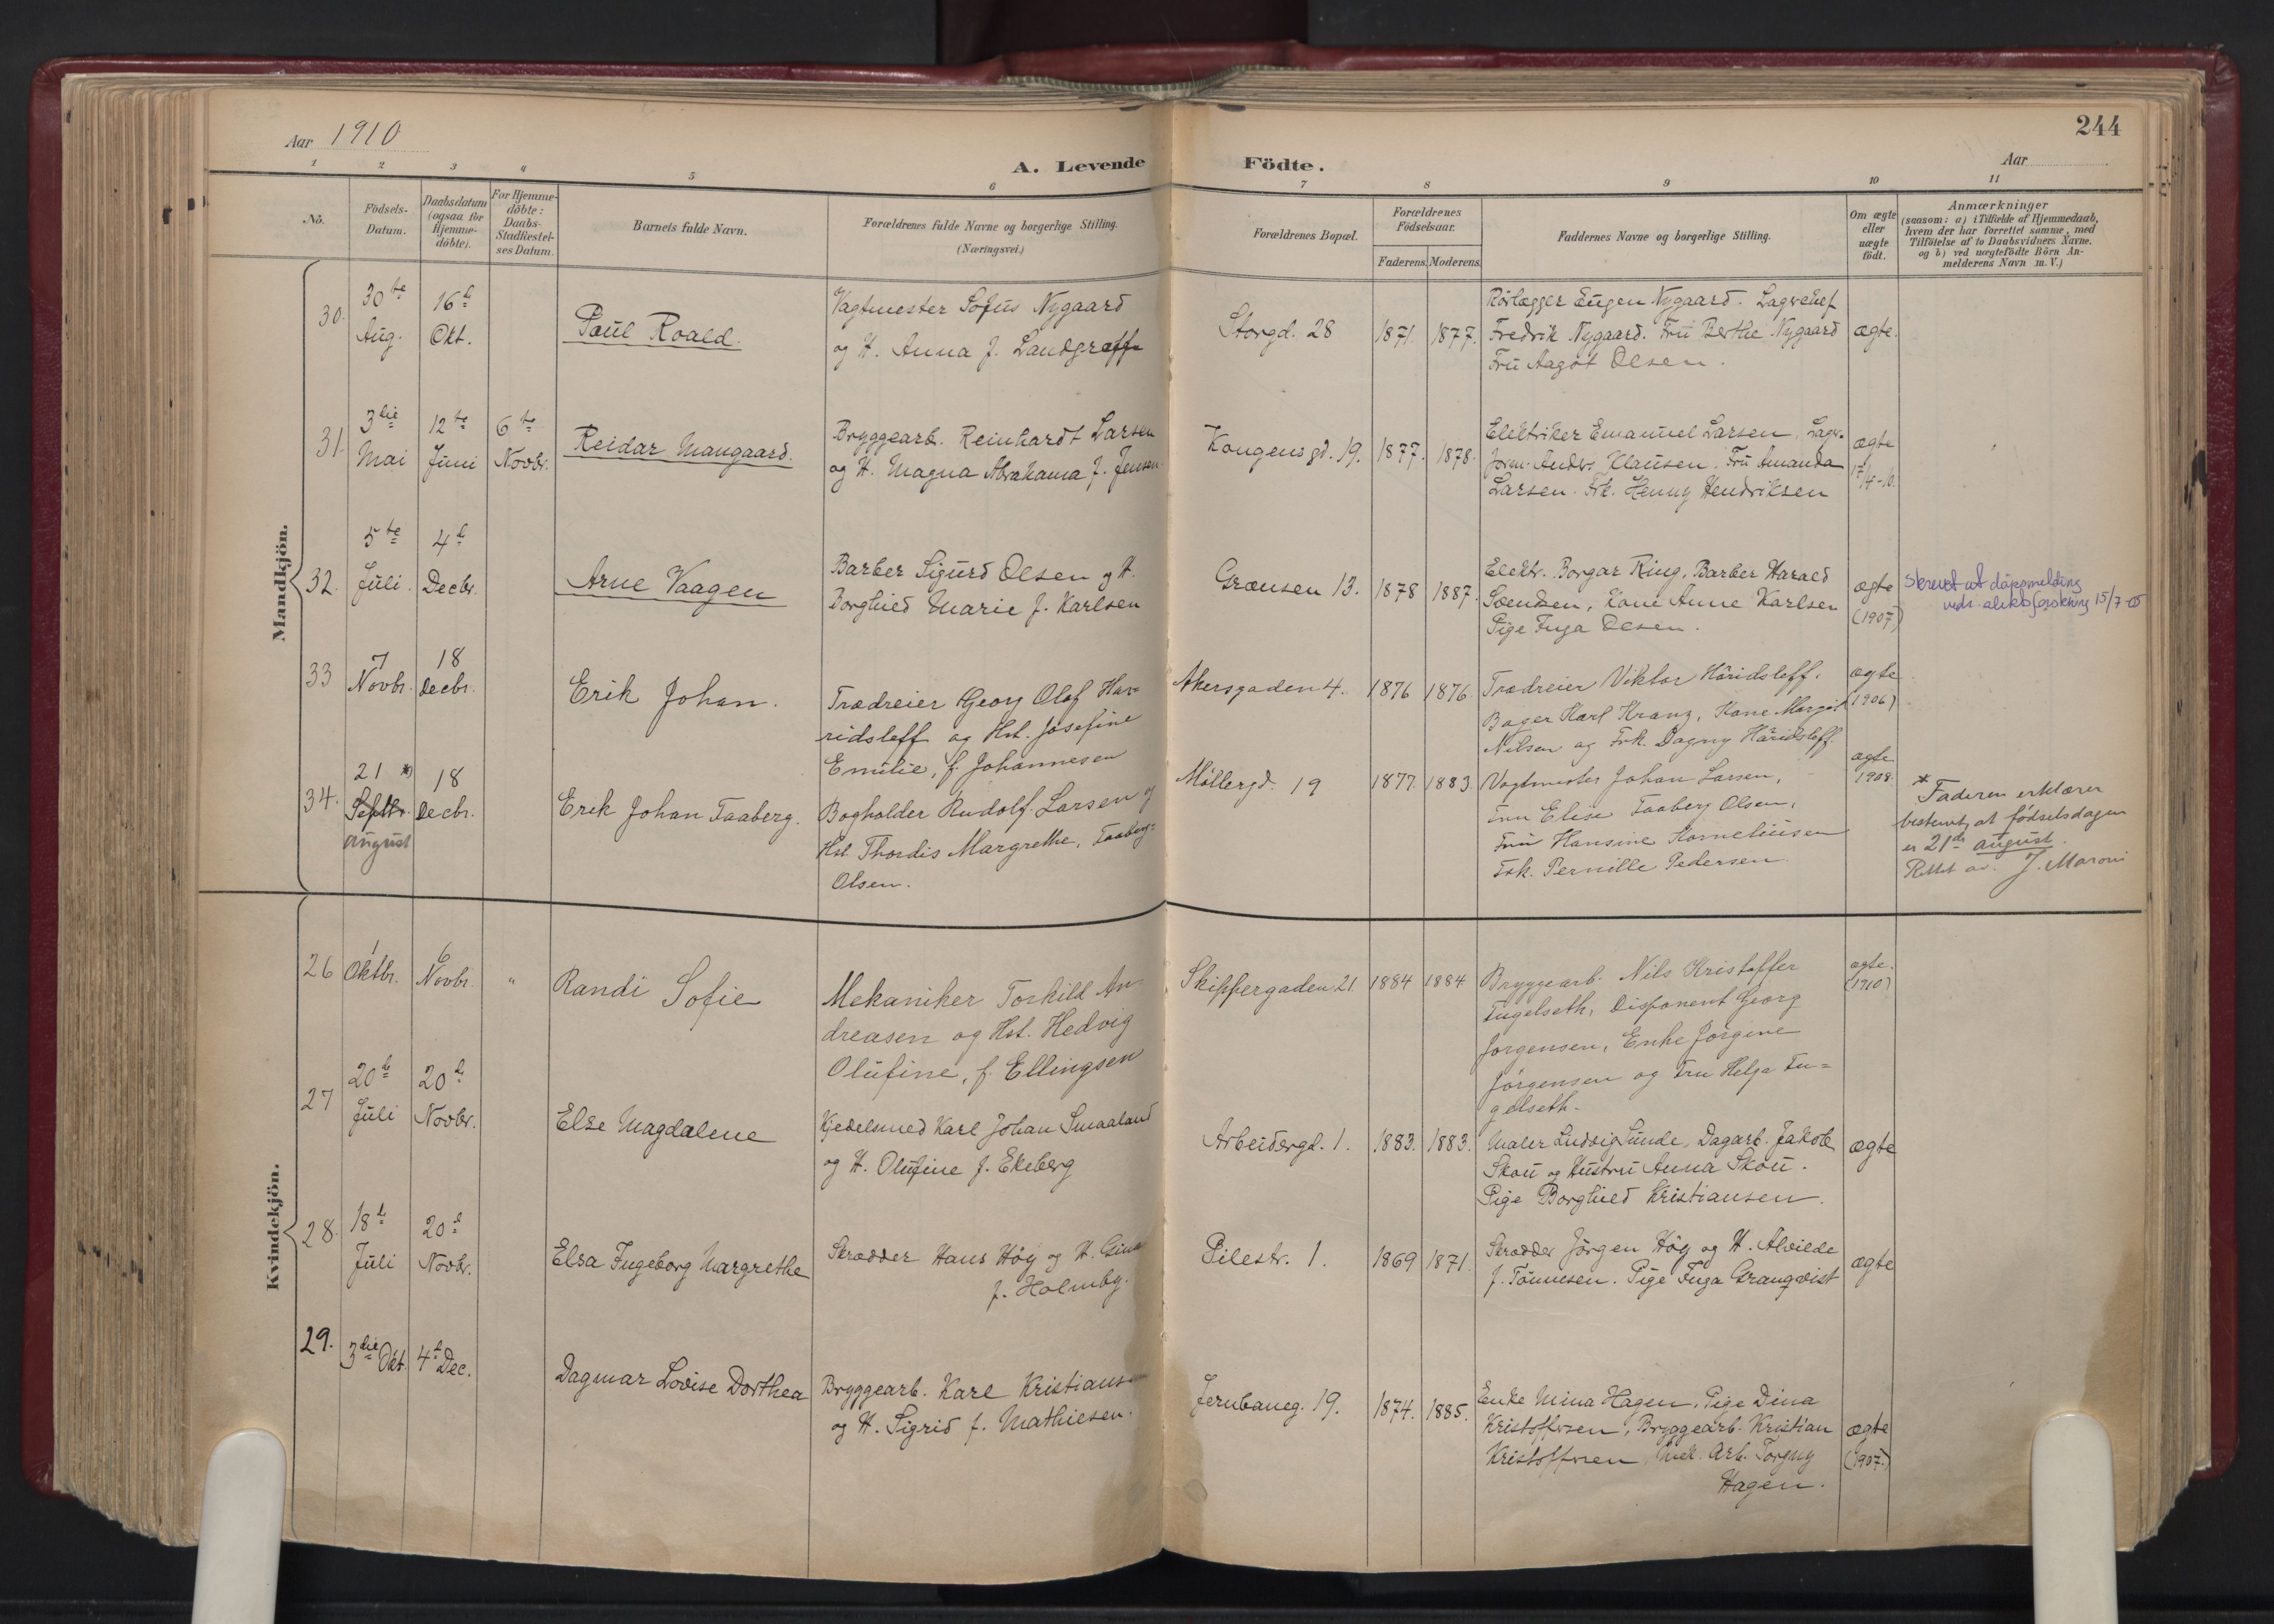 Aar 1910
A. Levende
Födte.
244
Aar
1 2 3 4 5 6 7 8 9 10 11
No.
Födsels-
Datum.
Daabsdatum
(ogsaa for
Hjemme-
döbte).
For Hjemme-
döbte:
Daabs-
Stadfæstel-
ses Datum.
Barnets fulde Navn.
Forældrenes fulde Navne og borgerlige Stilling.
(Næringsvei.)
Forældrenes Bopæl.
Forældrenes
Födselsaar.
Faderens. Moderens.
Faddernes Navne og borgerlige Stilling.
Om ægte
eller
uægte
födt.
Anmærkninger
(saasom: a) i Tilfælde af Hjemmedaab,
hvem der har forrettet samme, med
Tilföielse af to Daabsvidners Navne.
og b) ved uægtefödte Börn An-
melderens Navn m. V.)
Mandkjön.
30.
30te
Aug.
16d
Okt.
Paul Roald.
Vagtmester Sofus Nygaard
og H. Anna f. Landgraff
Storgd. 28
1871. 1877.
Rörlægger Eugen Nygaard. Lagerchef
Fredrik Nygaard. Fru Berthe Nygaard
Fru Aagot Olsen.
ægte.
31.
3die
Mai
12te
Juni
6te
Novbr.
Reidar Maugaard.
Bryggearb. Reinhardt Larsen
og H. Magna Abrahama f. Jensen
Kongensgd. 19.
1877. 1878.
Elektriker Emanuel Larsen, Lager-
form. Anders Klausen. Fru Amanda
Larsen. Frk. Henny Hendriksen
ægte
17/4-10.
32.
5te
Juli.
4d
Decbr.
Arne Vaagen
Barber Sigurd Olsen og H.
Borghild Marie f. Karlsen
Grænsen 13.
1878 1887.
Elektr. Borgar Ring, Barber Harald
Svendsen, Kone Anne Karlsen
Pige Inga Olsen.
ægte
(1907)
Skrevet ut dåpsmelding
15/7-
33
7
Novbr.
18
Decbr.
Erik Johan.
Trædreier Georg Olaf Har-
ridsleff og Hst. Josefine
Emilie, f. Johannesen
Akersgaden 4.
1876 1876
Trædreier Viktor Haridsleff.
Bager Karl Kranz, Kone Margit
Nilsen og Frk. Dagny Haridsleff.
ægte
(1906)
34.
21 *)
Septbr.
august
18
Decbr.
Erik Johan Faaberg.
Bogholder Rudolf Larsen og
Hst. Thordis Margrethe, Faaberg-
Olsen.
Möllergd. 19
1877. 1883.
Vagtmester Johan Larsen,
Fru Elise Faaberg Olsen,
Fru Hansine Korneliusen
Frk. Pernille Pedersen.
ægte
1908.
* Faderen erklærer
bestemt, at födselsdagen
er 21de august.
Rettet av. J. Maroni
Kvindekjön.
26
1
Oktbr.
6
Novbr.
"
Randi Sofie
Mekaniker Torkild An-
dreasen og Hst. Hedvig
Olufine, f. Ellingsen
Skippergaden 21.
1884 1884
Bryggearb. Nils Kristoffer
Engelseth, Disponent Georg
Jörgensen, Enke Jörgine
Jörgensen og Fru Helga En=
gelseth.
ægte.
(1910)
27
20de
Juli
20d
Novbr.
Else Magdalene
Kjedelsmed Karl Johan Smaaland
og H. Olufine f. Ekeberg
Arbeidergd. 1.
1883. 1883.
Maler Ludvig Sunde, Dagarb. Jakob
Skou og Hustru Anna Skou.
Pige Borghild Kristiansen.
ægte
28.
18d
Juli
20d
Novbr.
Elsa Ingeborg Margrethe
Skrædder Hans Höy og H. Gina
f. Holmby.
Pilestr. 1.
1869 1871.
Skrædder Jörgen Höy og H. Alvilde
f. Tönnesen. Pige Inga Granqvist
ægte
29.
3die Okt.
4d Dec.
Dagmar Lovise Dorthea
Bryggearb. Karl Kristiansen
og H. Sigrid f. Mathiesen.
Jernbaneg. 19.
1874. 1885.
Enke Mina Hagen, Pige Dina
Kristoffersen, Bryggearb. Kristian
Kristoffersen, Mek. Arb. Torgny
Hagen.
ægte
(1907.)